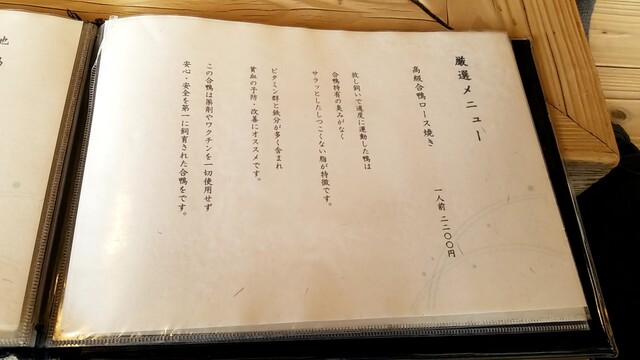 厳選メニュー
高級合鴨ロース焼き　一人前 二二〇〇円
放し飼いで適度に運動した鴨は
合鴨特有の臭みがなく
サラッとしたしつこくない脂が特徴です。
ビタミン群と鉄分が多く含まれ
貧血の予防・改善にオススメです。
この合鴨は薬剤やワクチンを一切使用せず
安心・安全を第一に飼育された合鴨をです。
地